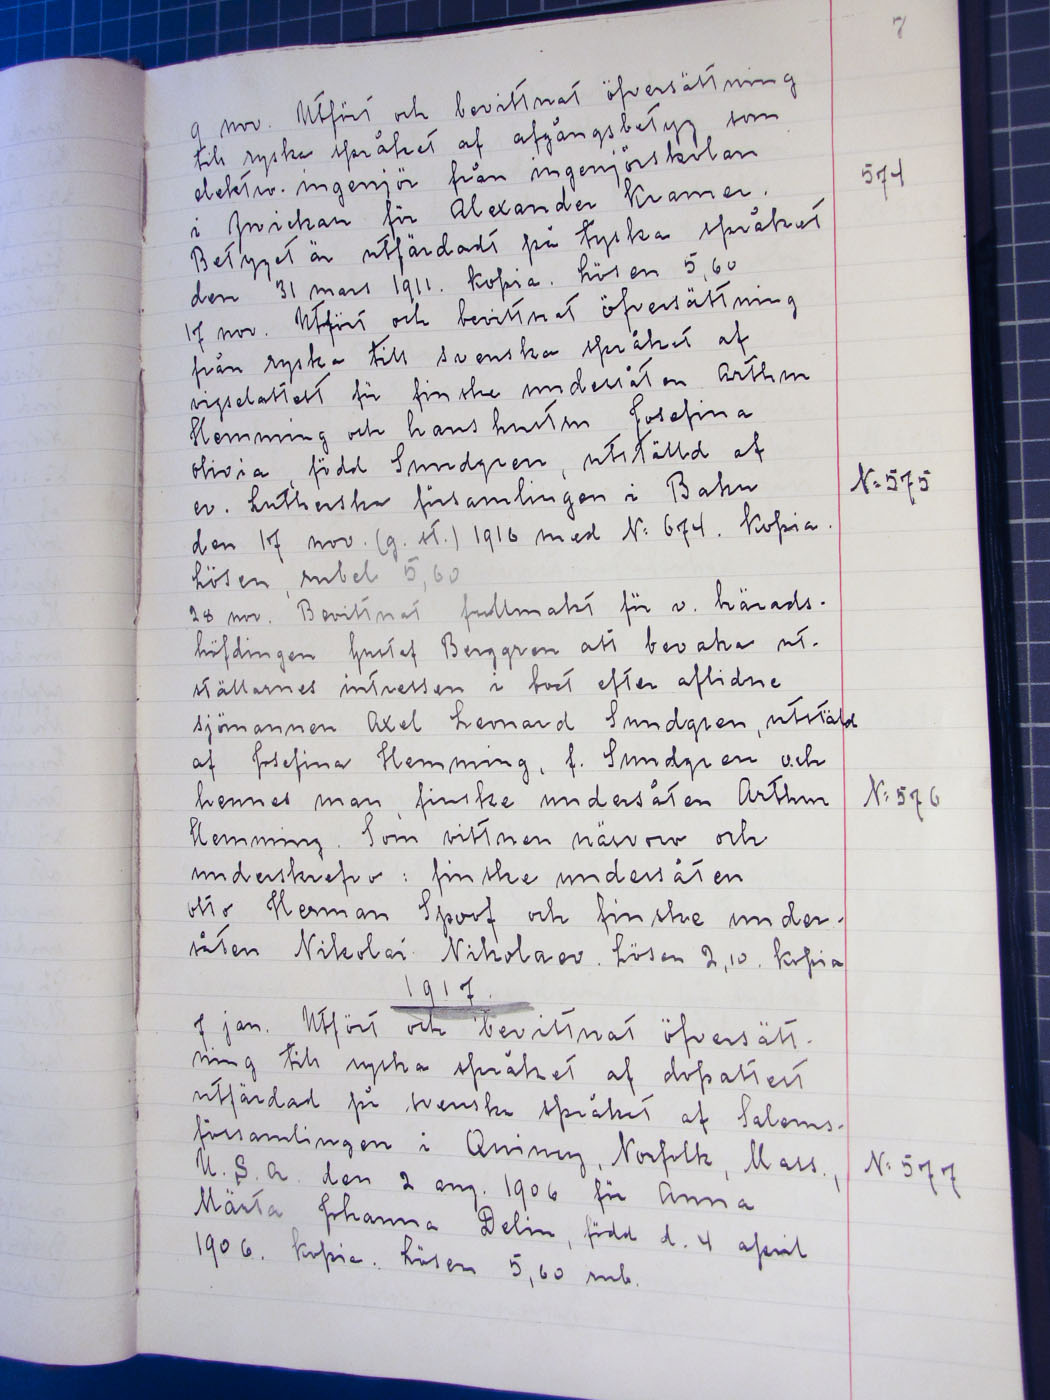 7
9 nov. Utfört och bevittnat öfversättning
till ryska språket af afgångsbetyg som
elektro. ingenjör från ingenjörskolan
574
i Zwickau för Alexander Kramer.
Betyget är utfärdadt på tyska språket
den 31 mars 1911. Kopia. Lösen 5,60
17 nov. Utfört och bevittnat öfversättning
från ryska till svenska språket af
vigselattest för finske undersåten Arthur
Hemming och hans hustru Josefina
Olivia, född Sundgren, utställd af
ev. Lutherska församlingen i Baku
N: 575
den 17 nov. (g. st.) 1916 med N: 674. Kopia.
Lösen, rubel 5,60
28 nov. Bevittnat fullmakt för v. härads-
höfdingen Gustaf Berggren att bevaka ut-
ställarnes intressen i boet efter aflidne
sjömannen Axel Leonard Sundgren, utstäld
af Josefina Hemming, f. Sundgren och
hennes man, finske undersåten Arthur
N: 576
Hemming. Som vittnen närvoro och
underskrefvo: finske undersåten
Otto Herman Spoof och finske under-
såten Nikolai Nikolaev. Lösen 2,10. Kopia
1917.
7 jan. Utfört och bevittnat öfversätt-
ning till ryska språket af dopattest
utfärdad på svenska språket af Salems-
församlingen i Quincy, Norfolk, Mass.,
N: 577
U. S. A. den 2 aug. 1906 för Anna
Märta Johanna Delin, född d. 4 april
1906. Kopia. Lösen 5,60 rub.